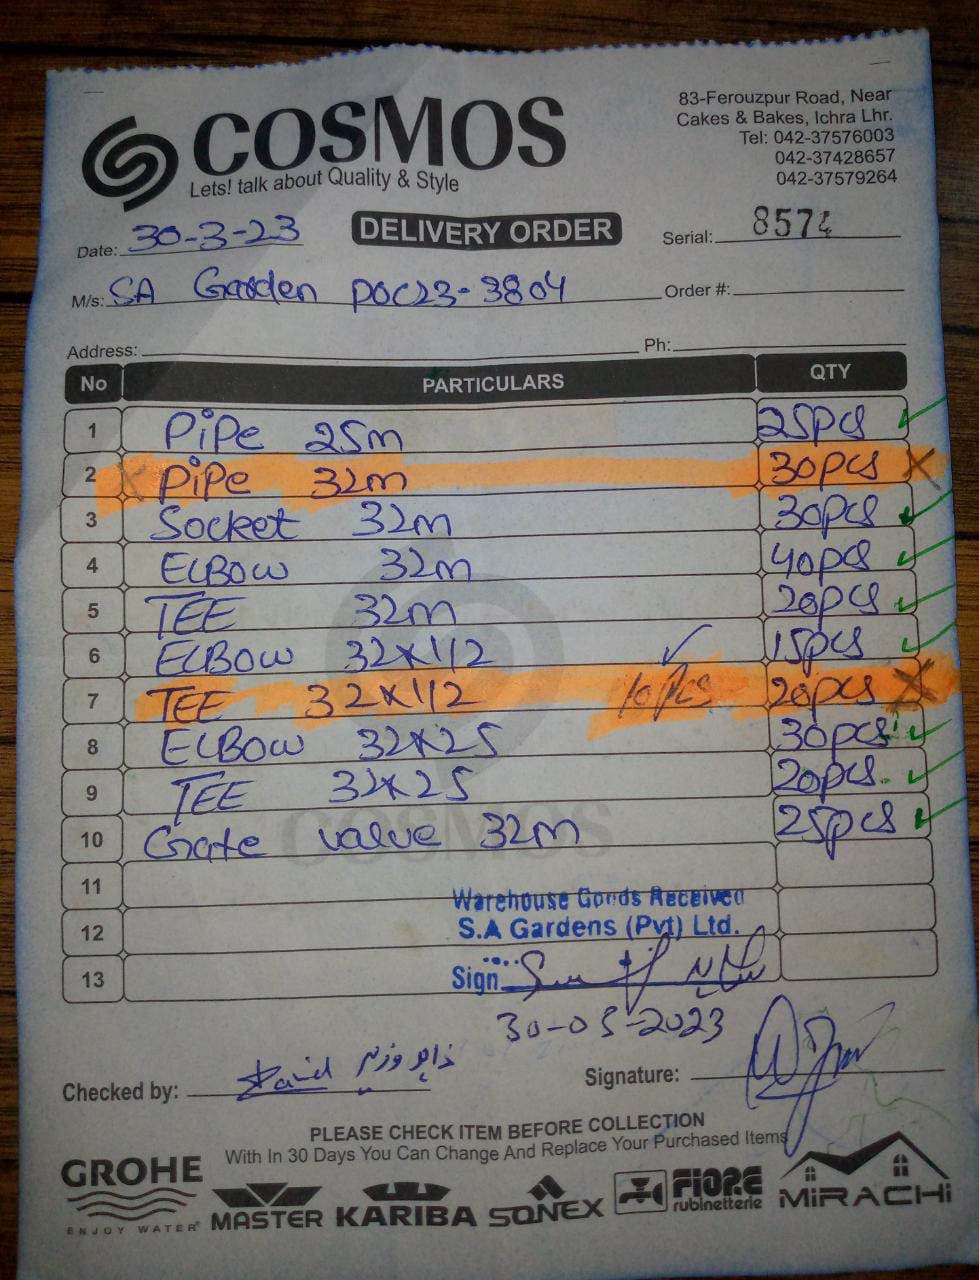 COSMOS
Lets! talk about Quality & Style
83-Ferouzpur Road, Near
Cakes & Bakes, Ichra Lhr.
Tel: 042-37576003
042-37428657
042-37579264
Date: 30-3-23
DELIVERY ORDER
Serial: 8574
M/s: SA Garden POC23-3804 Order #:
Address: Ph:
No PARTICULARS QTY
1 PiPe 25m 25pcs
2 PiPe 32m 30pcs
3 Socket 32m 30pcs
4 ELBow 32m 40pcs
5 TEE 32m 20pcs
6 ELBow 32x112 15pcs
7 TEE 32x112 10 Pcs 20pcs
8 ELBow 32x25 30pcs
9 TEE 32x25 20pcs.
10 Gate value 32m 25pcs
11
12
13
Warehouse Goods Received
S.A Gardens (Pvt) Ltd.
Sign
30-05-2023
Checked by:
Signature:
PLEASE CHECK ITEM BEFORE COLLECTION
With In 30 Days You Can Change And Replace Your Purchased Items
GROHE
ENJOY WATER®
MASTER
KARIBA
SONEX
FIORE
rubinetterie
MiRACHi
COSMOS